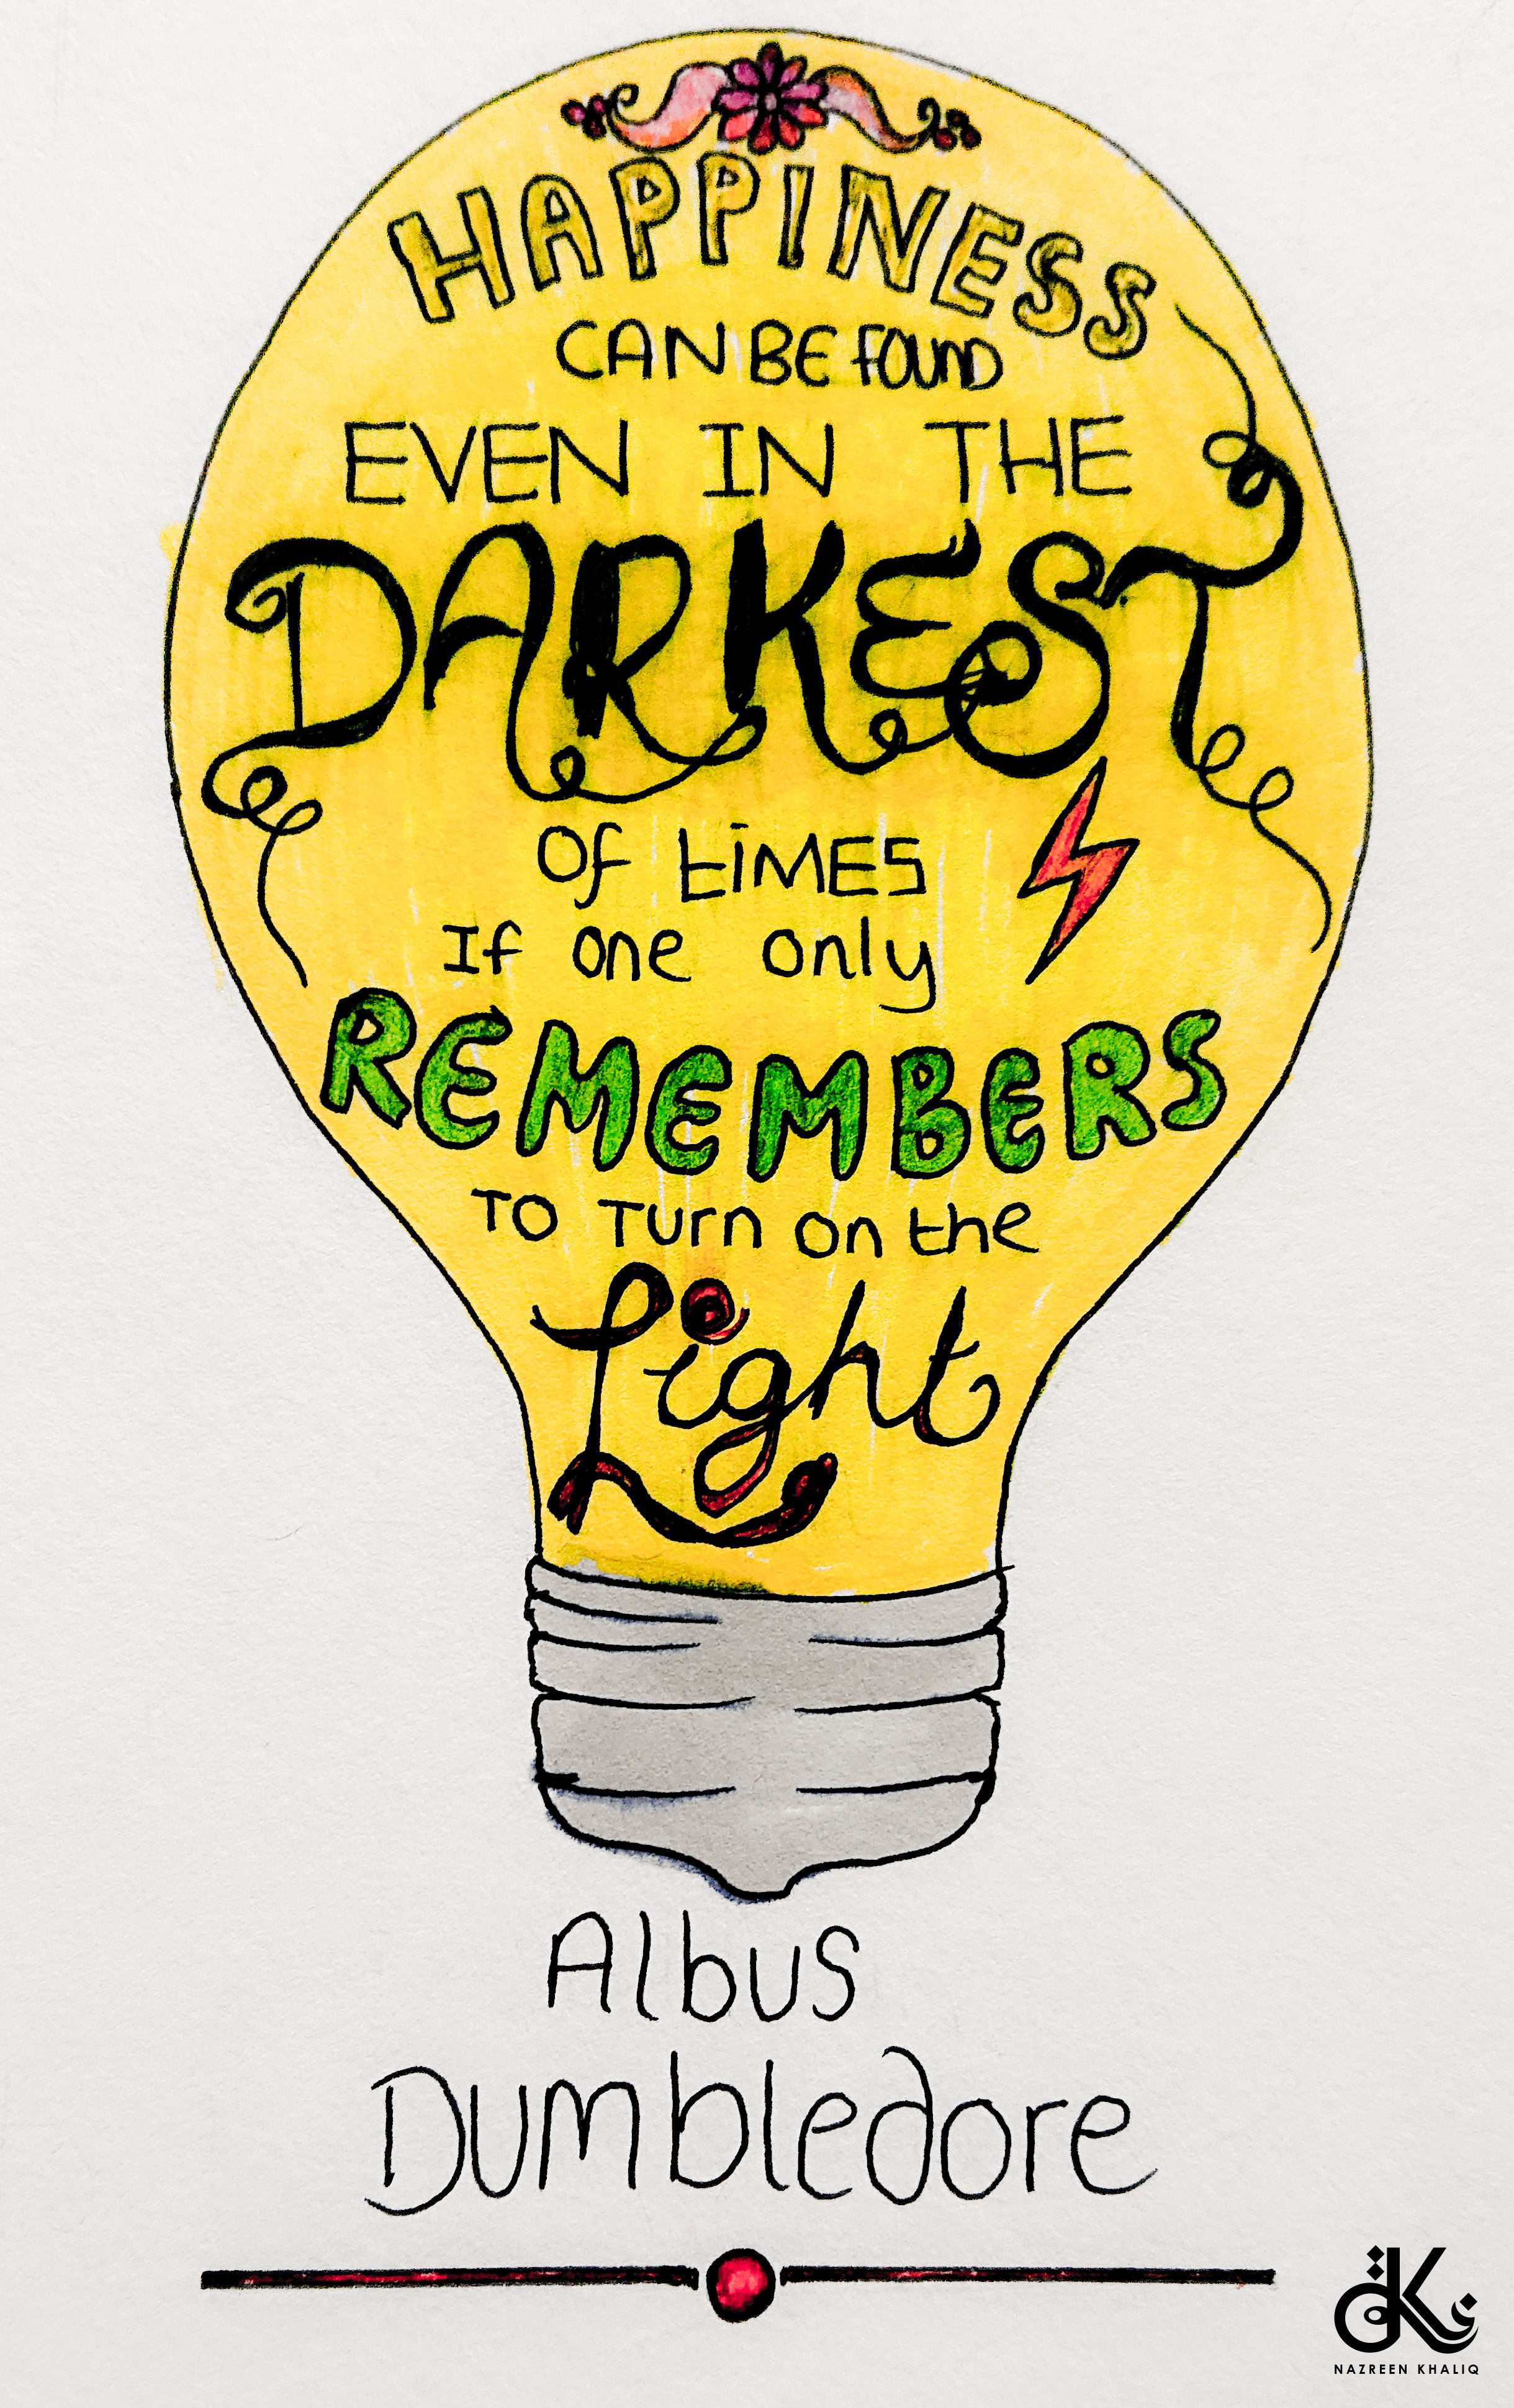 HAPPINESS
CAN BE FOUND
EVEN IN THE
DARKEST
Of tIMES
If one only
REMEMBERS
TO Turn on the
Light
Albus
Dumbledore
NAZREEN KHALIQ